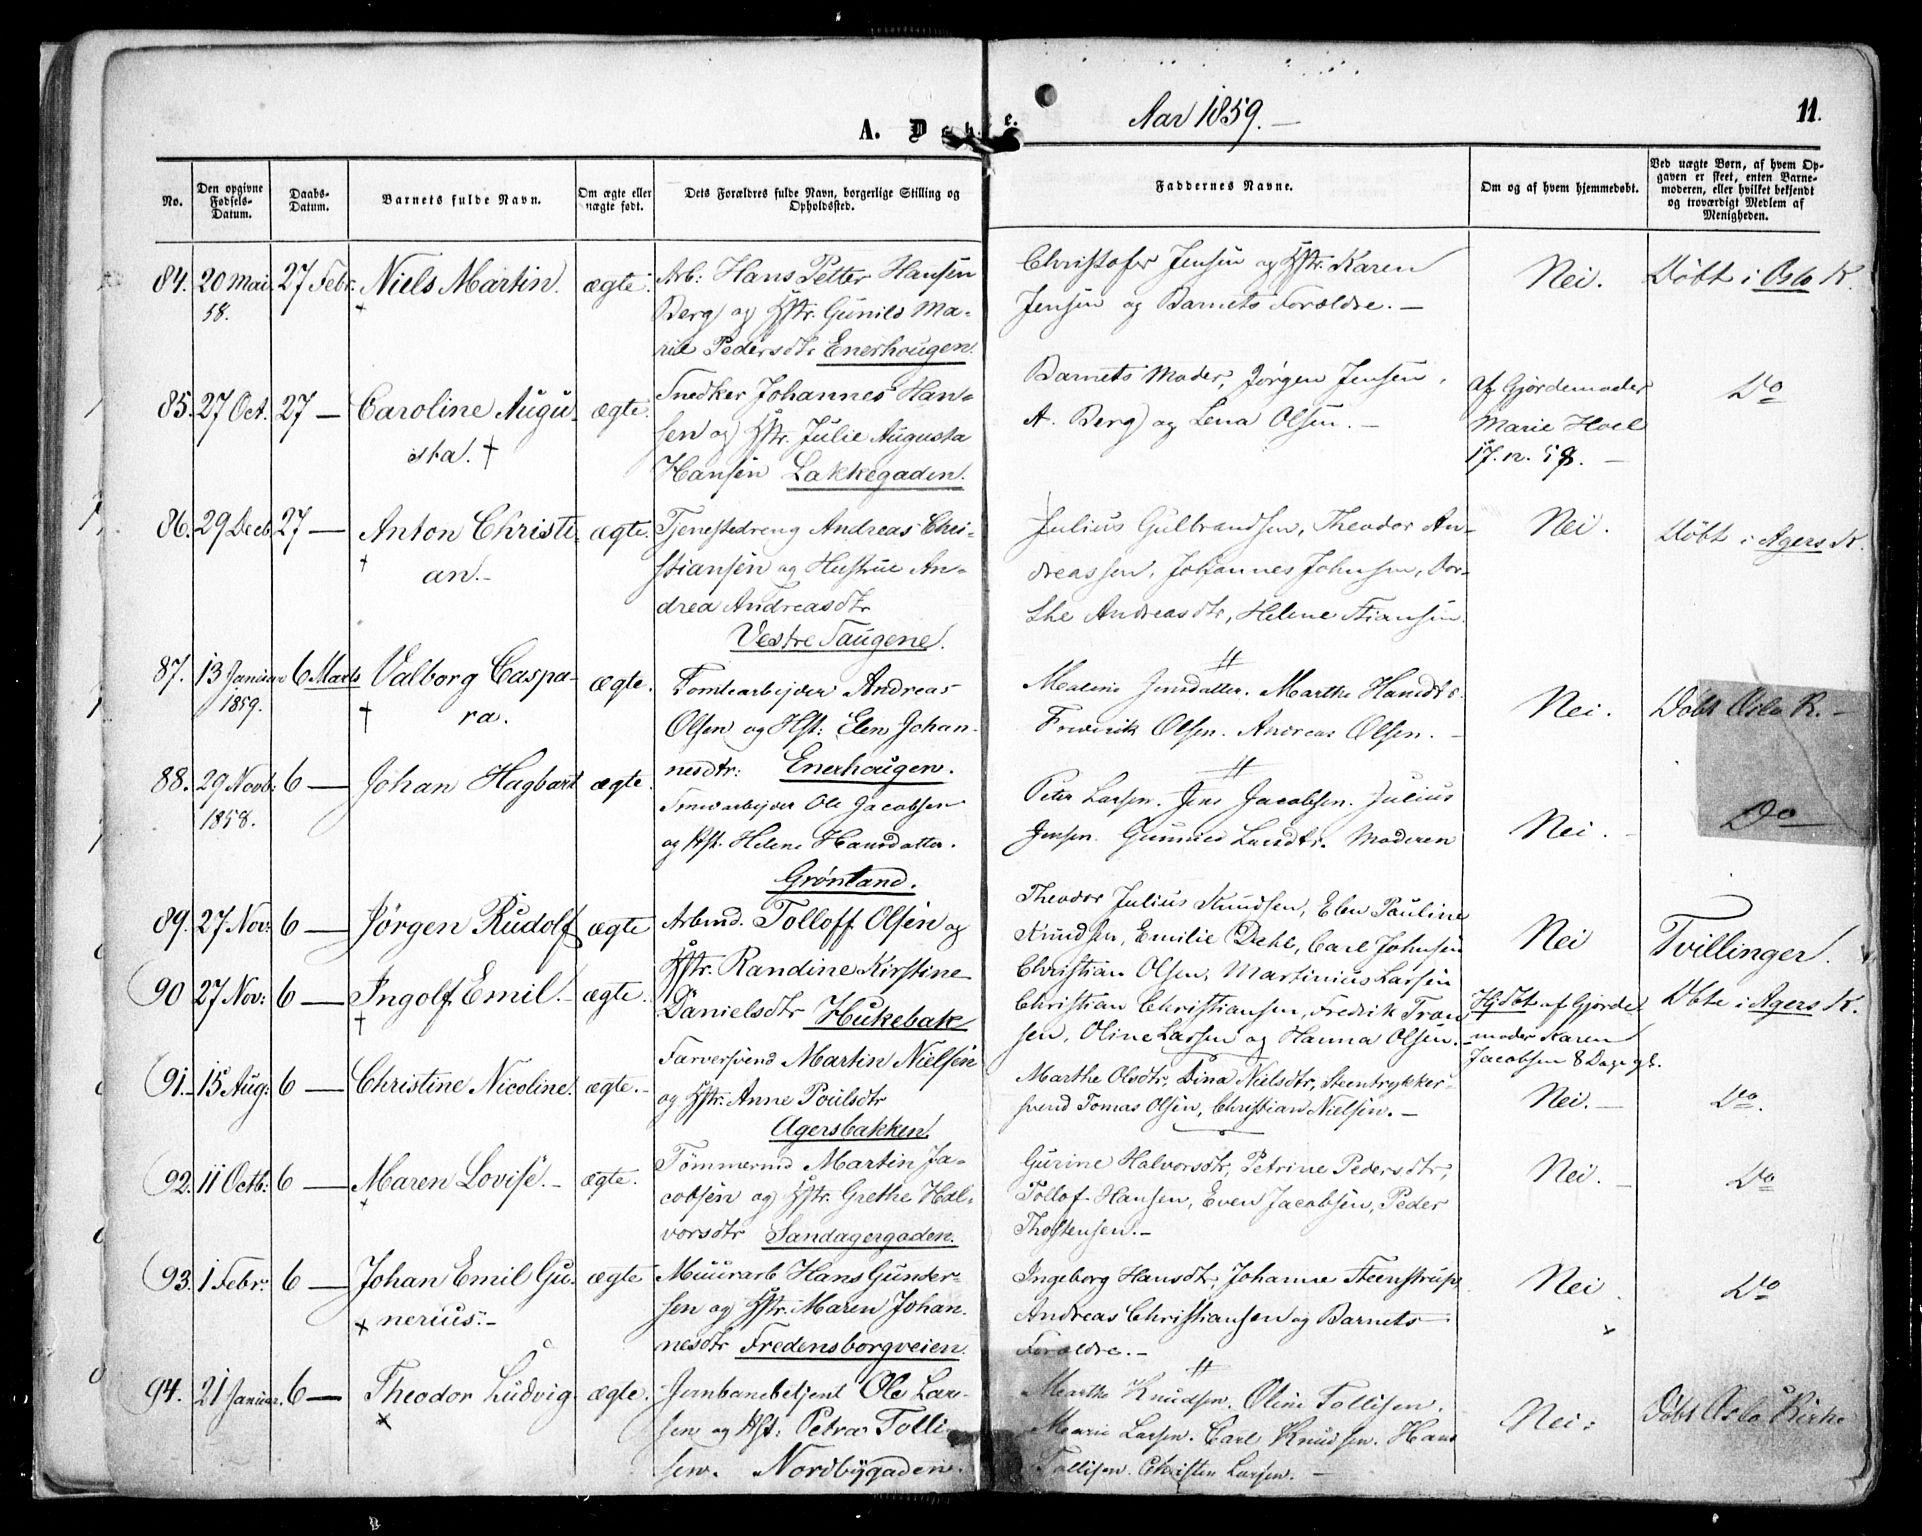 A. Døbte.
Aar 1859.
11.
No.
Den opgivne Fødsels-Datum.
Daabs-Datum.
Barnets fulde Navn.
Om ægte eller uægte født.
Dets Forældres fulde Navn, borgerlige Stilling og Opholdssted.
Faddernes Navne.
Om og af hvem hjemmedøbt.
Ved uægte Børn, af hvem Opgaven er skeet, enten Barnemoderen, eller hvilket bekjendt og troværdigt Medlem af Menigheden.
84. 20 Mai 58. 27 Febr. Niels Martin. ægte.
Arb: Hans Petter Hansen
Berg og Hstr. Gunild Ma-
rie Pedersdtr Enerhougen.
Christofer Jensen og Hstr. Karen
Jensen og Barnets Forældre. —
Nei.
Døbt i Oslo K.
85. 27 Oct. 27 — Caroline Augu-
sta. † ægte.
Snedker Johannes Han-
sen og Hstr. Julie Augusta
Hansen Lakkegaden.
Barnets Moder, Jørgen Jensen,
A. Berg og Lena Olsen. —
af Gjordemoder
Marie Hoel
Do
86. 29 Decb. 27 — Anton Christi-
an. — † ægte.
Tjenestedreng Andreas Chri-
stiansen og Hustrue An-
drea Andreasdtr
Vestre Haugene.
Julius Gulbrandsen, Theodor An-
dreassen, Johannes Johnsen, Dor-
the Andreasdtr, Helene Stiansen.
Nei.
Døbt i Agers K.
87. 13 Januar 1859. 6 Marts Valborg Caspa-
ra. † ægte.
Tomtearbejder Andreas
Olsen og Hst: Elen Johan-
nesdtr: Enerhougen.
Malene Jensdatter. Marthe Hansdtr.
Frederik Olsen. Andreas Olsen. —
Nei.
Døbt Oslo K. —
88. 29 Novb: 1858. 6 — Johan Hagbart ægte.
Ole Jacobsen
og Hst. Helene Hansdatter.
Grønland.
Peter Larsen. Jens Jacobsen. Julius
Jensen. Gunnild Larsdtr. Moderen
Nei.
Do
89. 27 Nov: 6 — Jørgen Rudolf ægte
Arbmd. Tolloff Olsen og
Hstr. Randine Kirstine
Danielsdtr Hukebak
Theodor Julius Knudsen, Elen Pauline
Knudsen, Emilie Dehl, Carl Johnsen
Nei
Tvillinger.
90 27 Nov: 6 — Ingolf Emil. — † ægte.
Christian Olsen, Martinius Larsen
Christian Christiansen, Fredrik Fran-
sen, Oline Larsen og Hanna Olsen. —
Hjdbt af Gjorde-
moder Karen
Jacobsen 8 Dage gl.
Dbte i Agers K.
91. 15 Aug: 6 — Christine Nicoline. ægte. —
Farversvend Martin Nielsen
og Hstr. Anne Poulsdtr
Agersbakken.
Marthe Olsdtr, Dina Nielsdtr, Steentrykker-
svend Tomas Olsen, Christian Nielsen. —
Nei. —
Do.
92. 11 Octb: 6 — Maren Lovise. — ægte.
Tømmermd Martin Ja-
cobsen og Hstr. Grethe Hal-
vorsdtr Sandagergaden.
Gurine Halvorsdtr, Petrine Pedersdtr,
Tollof Hansen, Even Jacobsen, Peder
Thostensen. —
Nei.
Do
93. 1 Febr: 6 — Johan Emil Gu-
nerius. — × ægte
Muurarb Hans Gunder-
sen og Hstr. Maren Johan-
nesdtr Fredensborgveien.
Ingeborg Hansdtr, Johanne Steenstrup,
Andreas Christiansen og Barnets
Forældre. —
Nei.
Do
94. 21 Januar. 6 — Theodor Ludvig × ægte.
Jernbanebetjent Ole Lar-
sen og Hst: Petra Tolli-
sen. Nordbygaden.
Marthe Knudsen, Oline Tollisen.
Marie Larsen. Carl Knudsen. Hans
Tollisen. Christen Larsen. —
Nei:
Døbt Oslo Kirke